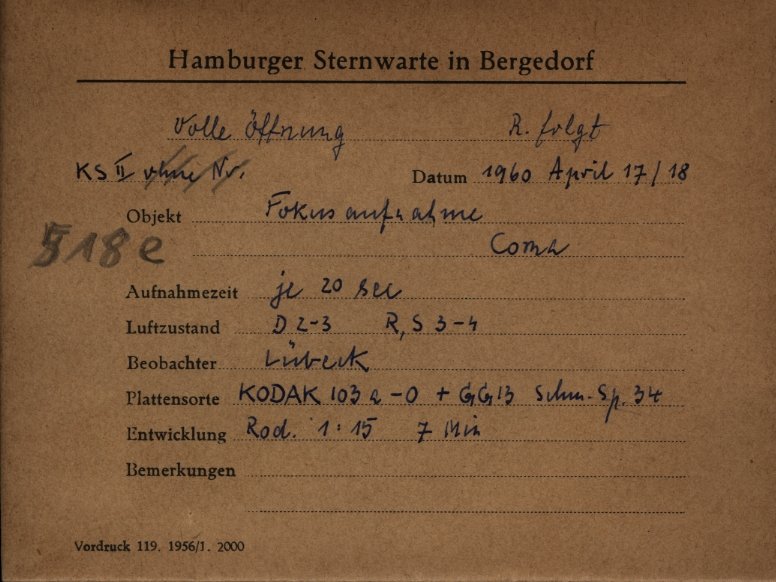 Hamburger Sternwarte in Bergedorf
Volle Öffnung R. folgt
KS II ohne Nr. Datum 1960 April 17/18
Objekt Fokusaufnahme
518e Coma
Aufnahmezeit je 20 sec
Luftzustand D 2-3 R, S 3-4
Beobachter Lübeck
Plattensorte KODAK 103a-O + GG13 Schm.-Sp. 34
Entwicklung Rod. 1:15 7 Min
Bemerkungen
Vordruck 119. 1956/1. 2000